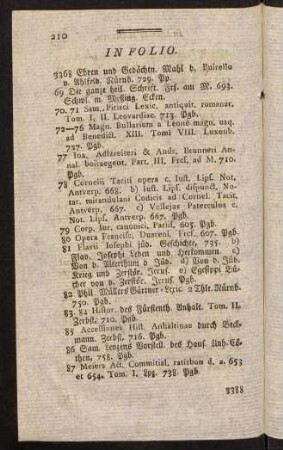 210
IN FOLIO.
3368 Ehren und Gedächtn. Mahl v. Luicella
v. Ahlfeld. Nürnb. 729. Pp.
69 Die ganze heil. Schrift. Frf. am M. 693.
Schwl. m. Meßing. Eckm.
70. 71 Sam. Pitisci Lexic. antiquit. romanar.
Tom. I, II. Leovardiae. 713. Pgb.
72—76 Magn. Bullarium a Leone magn. usq.
ad Benedict. XIII. Tomi VIII. Luxenb.
727. Pgb.
77 Ioa. Adlzreiteri & Andr. Brunneri An-
nal. boicaegent. Part. III, Fref, ad M. 710.
Pgb.
78 Cornelii Taciti opera c. Iust. Lips. Not.
Antverp. 668. b) Iust. Lips. disjunct. No-
tar. mirandulani Codicis ad Cornel. Tacit.
Antverp. 667. c) Vellejus Paterculus c.
Not. Lips. Antverp. 667. Pgb.
79 Corp. Iur. canonici, Parisf. 605. Pgb.
80 Opera Francisc. Duareni. Fref. 607. Pgb.
81 Flavii Iosephi jüd. Geschichte, 735. b)
Flav. Josephi Leben und Herkommen. c)
Von d. Alterthum d. Jüd. d) Von d. Jüd.
Krieg und Zerstör. Jerus. e) Egesippi Bü-
cher von d. Zerstör. Jerus. Pgb.
82 Phil. Müllers Gärtner-Lexic. 2 Thle. Nürnb.
750. Pgb.
83. 84 Histor. des Fürstenth. Anhalt. Tom. II.
Zerbst. 710. Pgb.
85 Accessiones Hist. Anhaltinae durch Beck-
mann. Zerbst. 716. Pgb.
86 Sam. Lenzens Vorstell. des Hauf. Anh. Cö-
then. 758. Pgb.
87 Meiers Act. Committial. ratisbon d. a. 653
et 654. Tom. I. Lpz. 738. Pgb.
3388